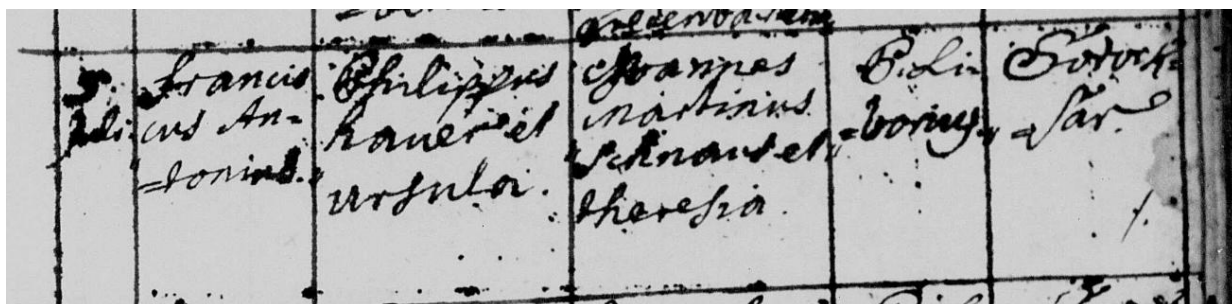 5. Juli
Francis
cus An=
=tonius.
Philippus
hauer et
Ursula.
Joannes
Martinus
Schnaus et
theresia
P. Li=
=borius
Sorock=
=sar.